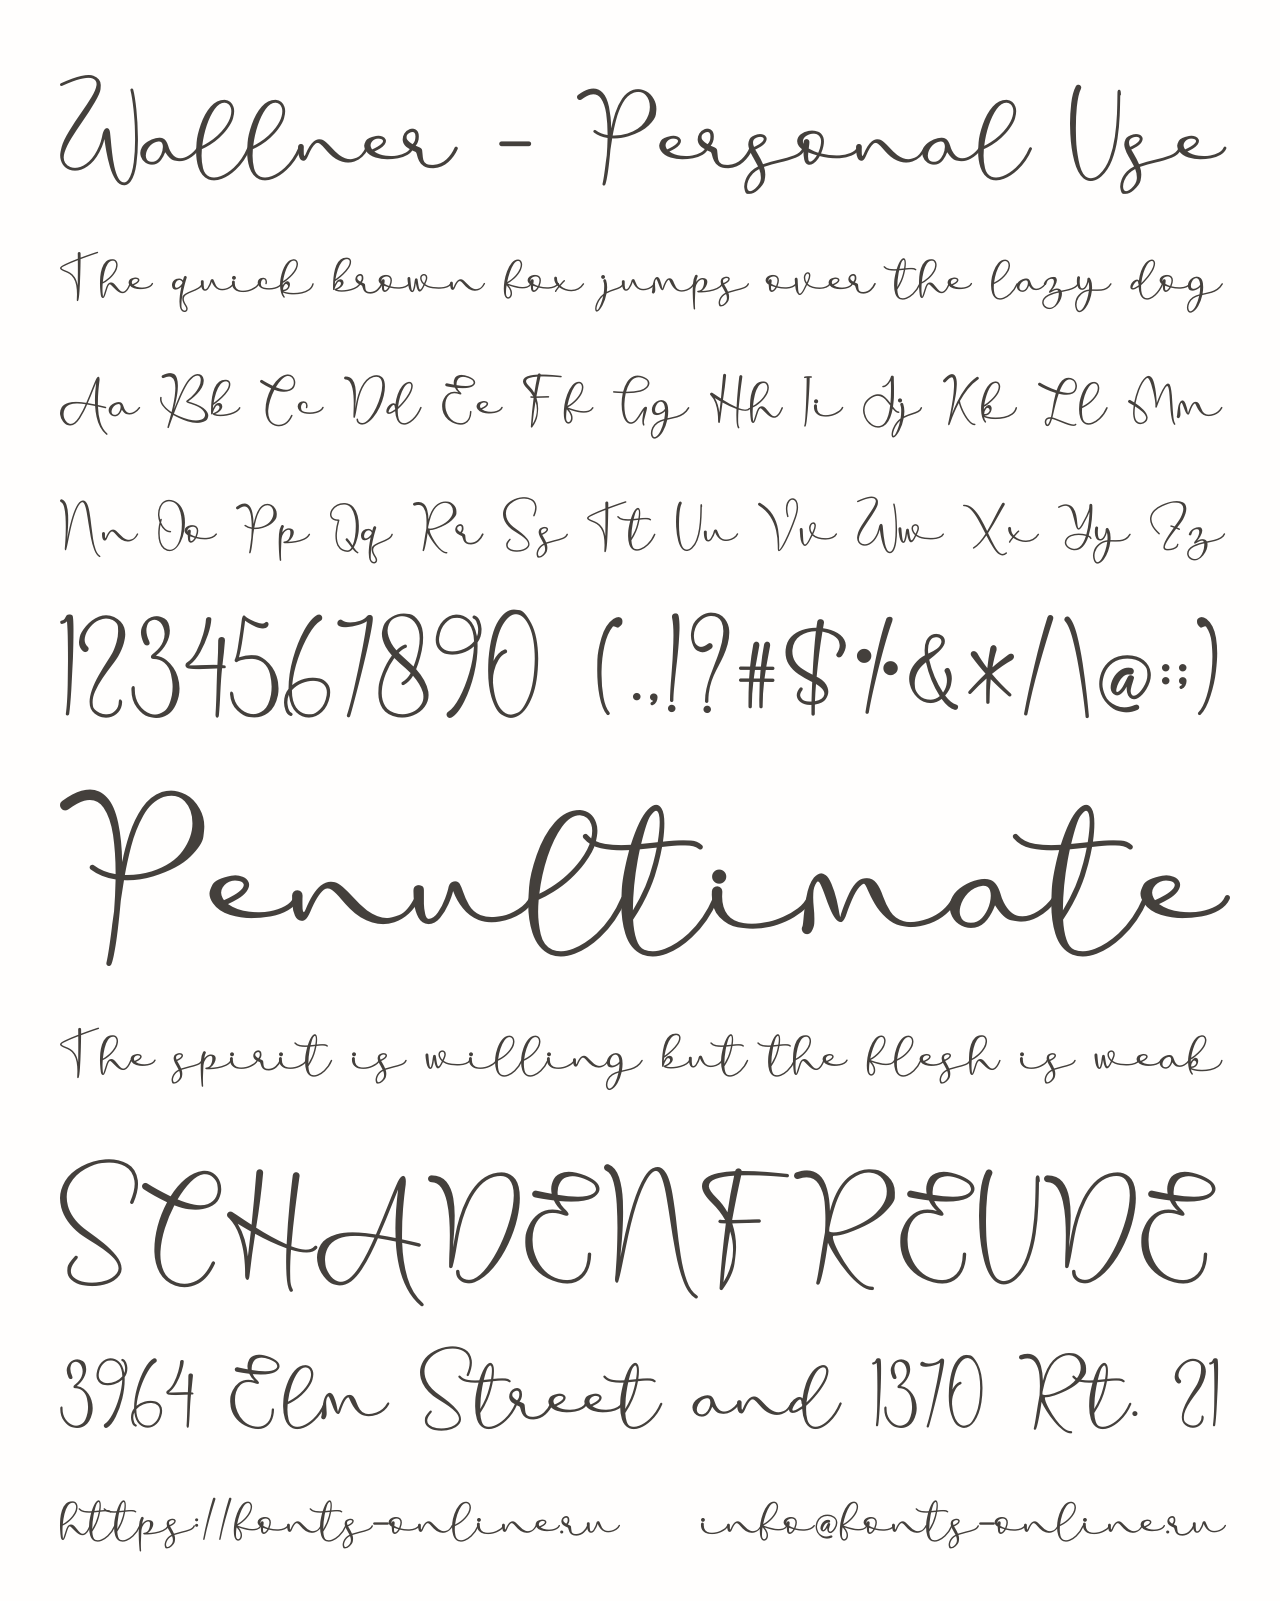 Wallner - Personal Use
The quick brown fox jumps over the lazy dog
Aa Bb Cc Dd Ee Ff Gg Hh Ii Jj Kk Ll Mm
Nn Oo Pp Qq Rr Ss Tt Uu Vv Ww Xx Yy Zz
1234567890 (.,!?#$%&*/\@:;)
Penultimate
The spirit is willing but the flesh is weak
SCHADENFREUDE
3964 Elm Street and 1370 Rt. 21
https://fonts-online.ru info@fonts-online.ru